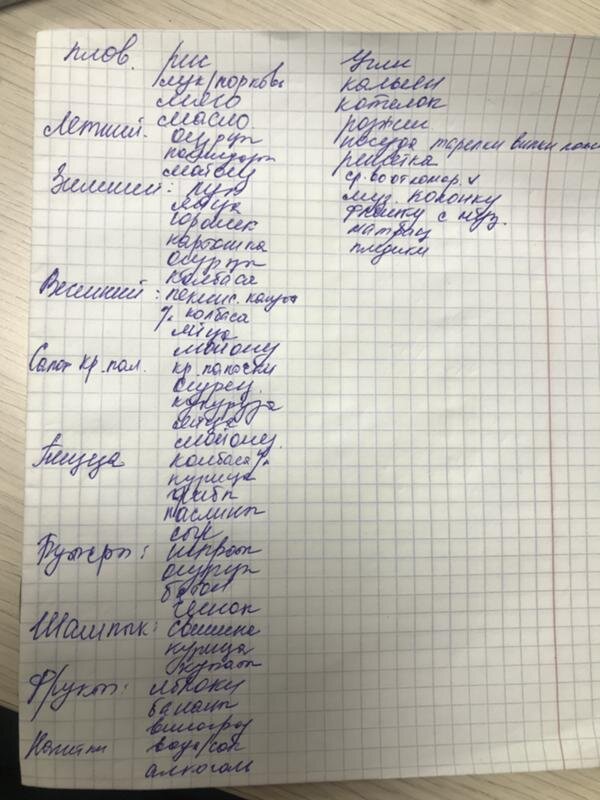 плов. рис
лук/морковь
мясо
масло
Летний. огурцы
помидоры
Зимний: лук
яйца
горошек
картошка
огурцы
колбаса
Весенний: пекинс. капуста
колбаса
яйца
майонез
Салат кр. пал. кр. палочки
огурец.
кукуруза
яйца
майонез.
Пицца колбаса
курица
грибы
маслины
сыр
Бутерб: шпроты
огурцы
батон
чеснок
Шашлык: свинина
курица
Фрукты: яблоки
бананы
виноград
Напитки вода/сок
алкоголь
Угли
кальян
котелок
розжиг
посуда тарелки вилки
решётка
ср-во от комар. v
муз. колонку
флешку с муз.
матрац
пледики